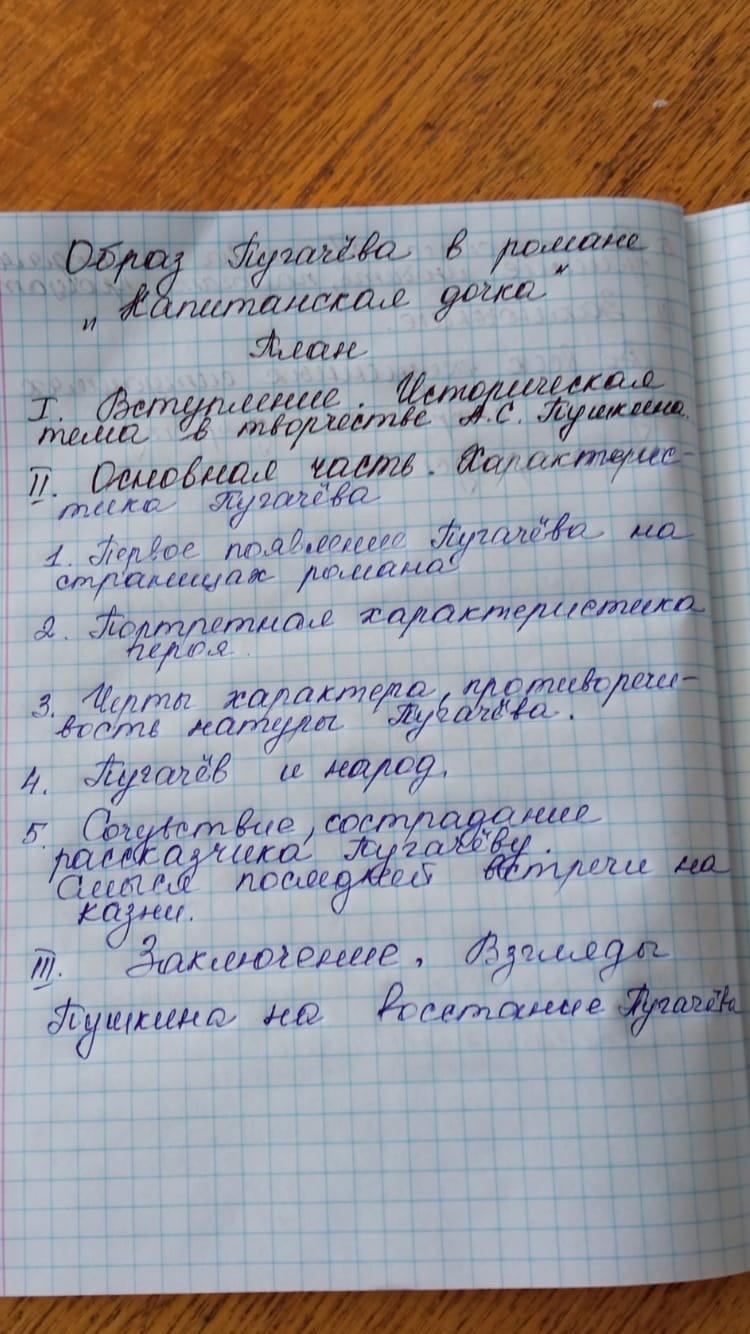 Образ Пугачёва в романе
„Капитанская дочка"
План
I. Вступление. Историческая
тема в творчестве А.С. Пушкина.
II. Основная часть. Характерис-
тика Пугачёва
1. Первое появление Пугачёва на
страницах романа
2. Портретная характеристика
героя.
3. Черты характера, противоречи-
вость натуры Пугачёва.
4. Пугачёв и народ.
5. Сочувствие, сострадание
рассказчика Пугачёву.
Смысл последней встречи на
казни.
III. Заключение. Взгляды
Пушкина на восстание Пугачёва